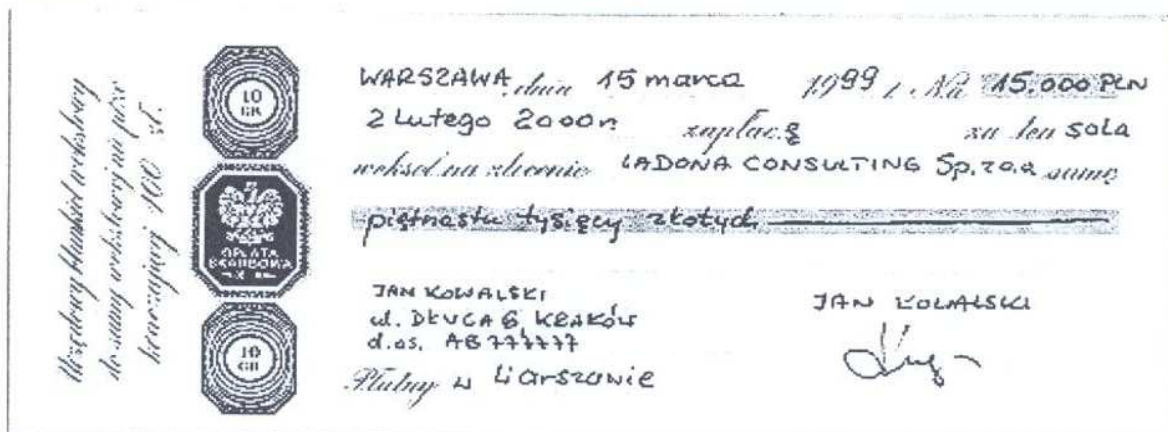 Urzędowy blankiet wekslowy
do sumy wekslowej nie prze-
kraczającej 100 zł.
10
GR
OPŁATA
SKARBOWA
10
GR
WARSZAWA, dnia 15 marca 1999 r. Na 15.000 PLN
2 Lutego 2000r zapłacę za ten sola
weksel na zlecenie LADONA CONSULTING Sp. z o.o sumę
piętnastu tysięcy złotych
JAN KOWALSKI
ul. DŁUGA 6 KRAKÓW
d.os. AB 777777
Płatny w Warszawie
JAN KOWALSKI